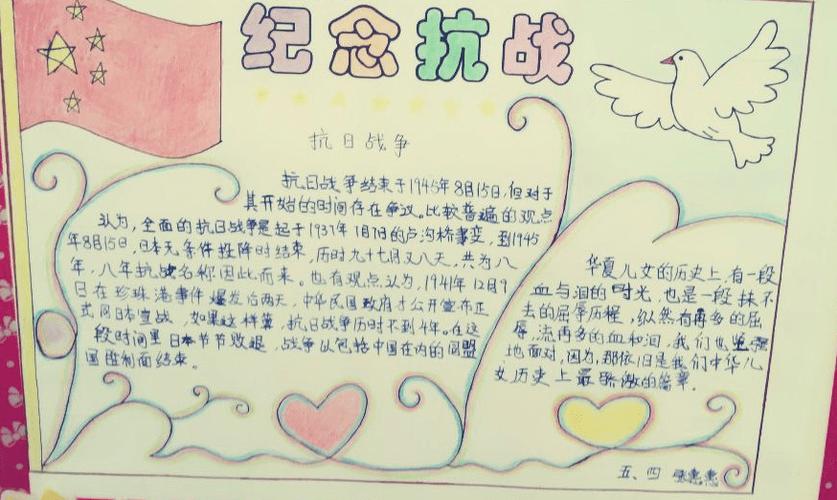 纪念抗战
抗日战争
抗日战争结束于1945年8月15日,但对于
其开始的时间存在争议。比较普遍的观点
认为,全面的抗日战争是起于1937年7月7日的卢沟桥事变,到1945
年8月15日,日本无条件投降时结束,历时九十七月又八天,共为八
年,八年抗战名称因此而来。也有观点认为,1941年12月9
日在珍珠港事件爆发后两天,中华民国政府才公开宣布正
式向日本宣战,如果这样算,抗日战争历时不到4年。在这
段时间里日本节节败退,战争以包括中国在内的同盟
国胜利而结束。
华夏儿女的历史上,有一段
血与泪的时光,也是一段抹不
去的屈辱历程,纵然有再多的屈
辱,流再多的血和泪,我们也坚强
地面对,因为,那依旧是我们中华儿
女历史上最骄傲的篇章.
五、四